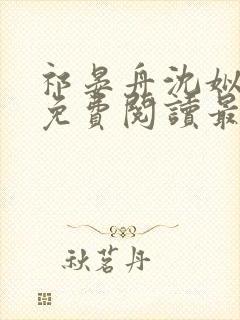 祁晏舟沈姒
免費閱讀最
秋茗丹